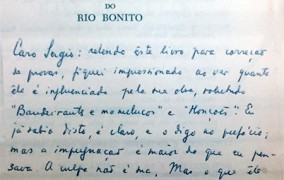 DO
RIO BONITO
Caro Sergio: relendo êste livro para correção
de provas, fiquei impressionado ao ver quanto
êle é influenciado pela sua obra, sobretudo
"Bandeirantes e mamelucos" e "Monções". Eu
já sabia disto, é claro, e o digo no prefácio;
mas a impregnação é maior do que eu pen-
sava. A culpa não é má. Mas o que êste